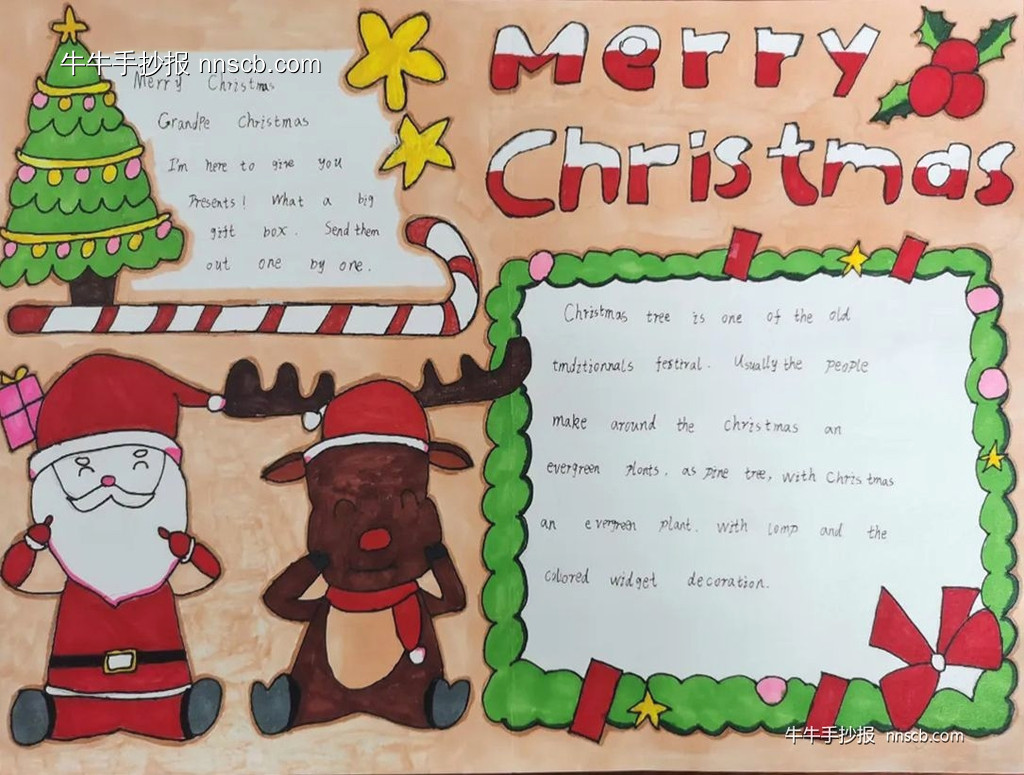 牛牛手抄报 nnscb.com
Merry Christmas
Grandpe Christmas
I'm here to give you
Presents! What a big
gift box. Send them
out one by one.
Merry
Christmas
Christmas tree is one of the old
tmditionnals festival. Usually the people
make around the christmas an
evergreen plonts. as pine tree, with Christmas
an evergreen plant. with lomp and the
colored widget decoration.
牛牛手抄报 nnscb.com